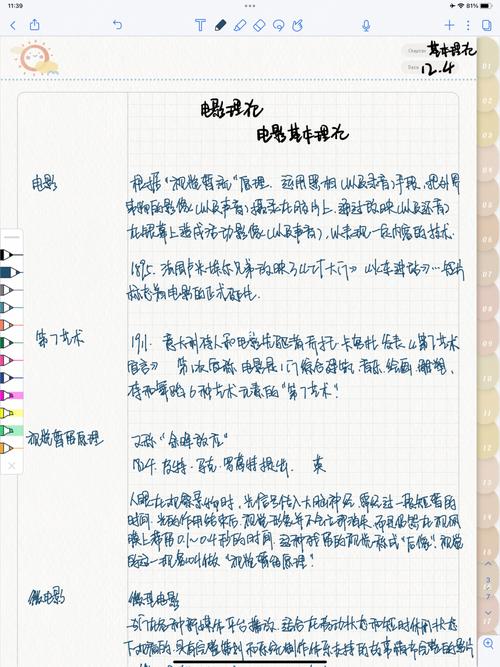 11:39
81%
Chapter 基本理论
Date 12.4
电影理论
电影基本理论
电影
根据“视觉暂留”原理，运用照相(以及录音)手段，把外界
事物的影像(以及声音)摄录在胶片上，通过放映(以及还音)
在银幕上造成活动影像(以及声音)，以表现一定内容的技术.
1895. 法国卢米埃尔兄弟放映了《工厂大门》《火车进站》…短片
标志着电影的正式诞生.
第7艺术
1911. 意大利诗人和电影先驱者乔托·卡努杜发表《第7艺术
宣言》 第1次宣称电影是1门综合建筑、音乐、绘画、雕塑、
诗和舞蹈6种艺术元素的“第7艺术”.
视觉暂留原理
又称“余晖效应”
1824. 皮特·马克·罗葛特提出. 英
人眼在观察景物时，光信号传入大脑神经，需经过一段短暂的
时间，光的作用结束后，视觉形象并不会立即消失，而且停留在视网
膜上停留0.1~0.4秒的时间，这种残留的视觉称成“后像”. 视觉
的这一现象叫做“视觉暂留原理”.
微电影
微型电影
专门在各种新媒体平台播放，适合在移动状态和短时休闲状态
下观看的，具有完整策划和系统制作体系支持的故事情节完整的影片
3
7
01
02
03
04
05
06
07
08
09
10
11
12
13
14
15
16
17